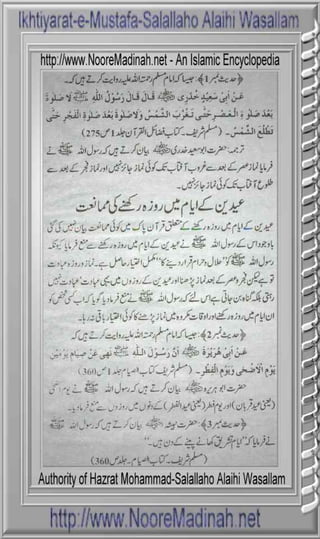 Ikhtiyarat-e-Mustafa-Salallaho Alaihi Wasallam
http://www.NooreMadinah.net - An Islamic Encyclopedia
﴿حدیث نمبر1﴾: جیسا کہ امام مسلم رحمۃ اللہ علیہ روایت کرتے ہیں کہ۔
عَنْ اَبِیْ سَعِیْدٍ خُدْرِی قَالَ قَالَ رَسُوْلُ اللّٰهِ ﷺ لَا صَلٰوةَ
بَعْدَ صَلٰوةِ الْعَصْرِ حَتّٰی تَغْرُبَ الشَّمْسُ وَلَا صَلٰوةَ بَعْدَ صَلٰوةِ الْفَجْرِ حَتّٰی
تَطْلُعَ الشَّمْسُ۔ (مسلم شریف۔ کتاب فضائل القرآن جلد 1 ص 275)
ترجمہ: حضرت ابو سعید خدری بیان کرتے ہیں کہ رسول اللہ ﷺ نے
فرمایا نماز عصر کے بعد سے غروب آفتاب تک کوئی نماز جائز نہیں اور نماز فجر کے بعد سے
طلوع آفتاب تک کوئی نماز جائز نہیں۔
عیدین کے ایام میں روزہ رکھنے کی ممانعت
عیدین کے ایام میں روزہ رکھنے کے متعلق قرآن پاک میں کوئی ممانعت بیان نہیں کی گئی
باوجود اس کے رسول اللہ ﷺ نے عیدین کے ایام میں روزہ رکھنے سے منع فرمایا کیونکہ
رسول اللہ ﷺ کو "حلال و حرام قرار دینے کا" مکمل اختیار حاصل ہے۔ نماز و روزہ عبادت
تو ہے لیکن فجر و عصر کے بعد نماز پڑھنا اور عیدین کے روزوں میں یہی عبادت عبادت نہیں
رہتی بلکہ گناہ بن جاتی ہے اس لئے کہ رسول اللہ ﷺ نے منع فرما دیا گویا کہ اب کسی شخص کو
ان ایام میں روزہ رکھنے اور اوقات مکروہ میں نماز پڑھنے کا کوئی اختیار باقی نہ رہا۔
﴿حدیث نمبر2﴾: جیسا کہ امام مسلم رحمۃ اللہ علیہ روایت کرتے ہیں کہ
عَنْ اَبِیْ هُرَیْرَةَ اَنَّ رَسُوْلَ اللّٰهِ ﷺ نَهٰی عَنْ صِیَامِ یَوْمَیْنِ
یَوْمِ الْاَضْحٰی وَیَوْمِ الْفِطْرِ۔ (مسلم شریف۔ کتاب الصیام جلد 1 ص 360)
حضرت ابو ہریرہ بیان کرتے ہیں کہ رسول اللہ ﷺ نے یوم اضحی
(یعنی عید قربان) اور یوم فطر (یعنی عید الفطر) کے دنوں میں روزوں سے منع فرما دیا۔
﴿حدیث نمبر3﴾: حضرت نبیشہ بیان کرتے ہیں کہ رسول اللہ ﷺ
نے فرمایا کہ "ایام تشریق کھانے پینے کے دن ہیں۔"
(مسلم شریف۔ کتاب الصیام۔ جلد ص 360)
Authority of Hazrat Mohammad-Salallaho Alaihi Wasallam
http://www.NooreMadinah.net